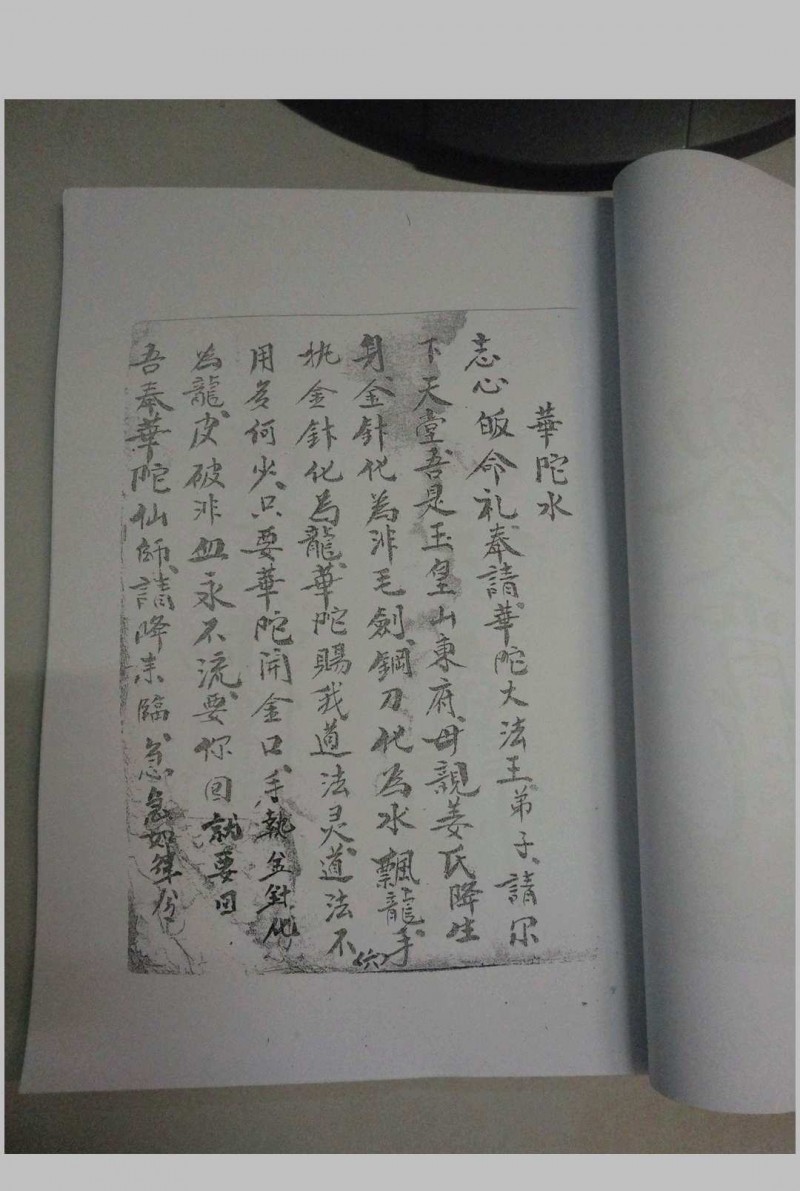 華陀水
志心皈命礼奉請華陀大法王弟子請尔
下天堂吾是玉皇山東府母親姜氏降生
身金針化為非毛劍鋼刀化為水飄龍手
执金針化為龍華陀賜我道法灵道法不
用多何少只要華陀開金口手執金針化
為龍皮破非血永不流要你回就要回
吾奉華陀仙師請降来臨急急如律令